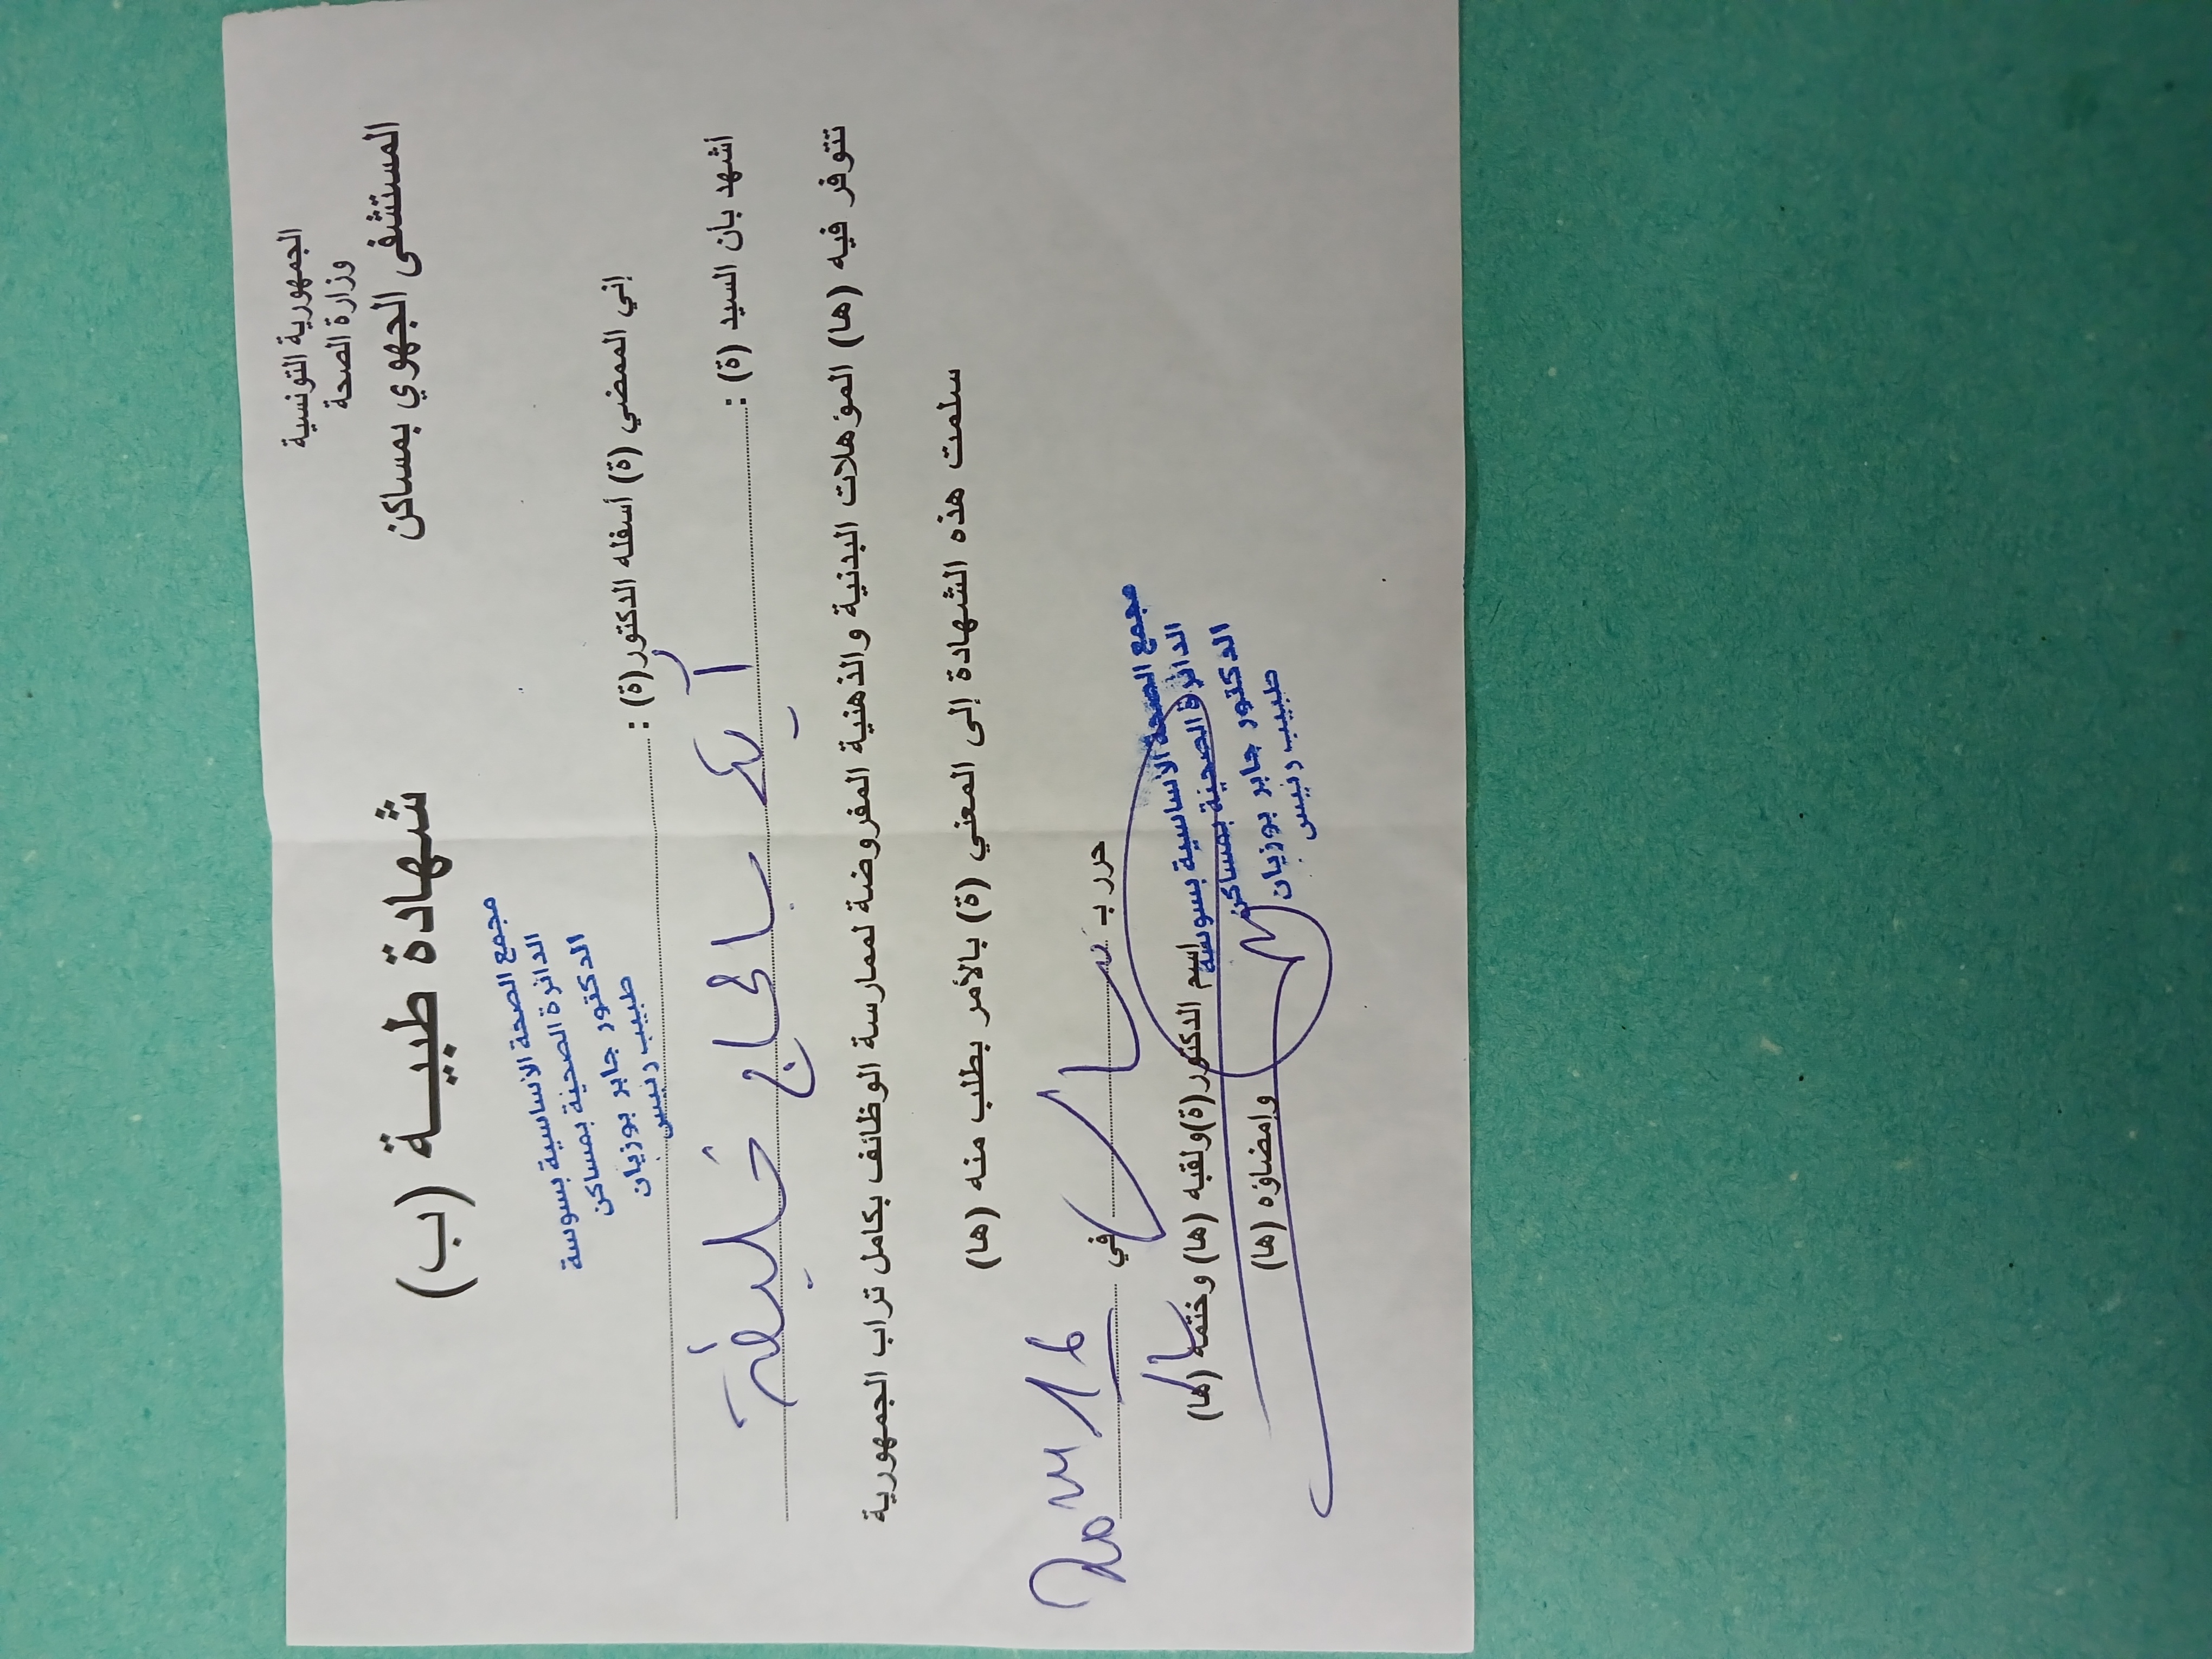 الجمهورية التونسية
وزارة الصحة
المستشفى الجهوي بمساكن
شهادة طبيــة (ب)
مجمع الصحة الأساسية بسوسة
الدائرة الصحية بمساكن
الدكتور جابر بوزيان
طبيب رئيس
إني الممضي (ة) أسفله الدكتور(ة) :
أشهد بان السيد (ة) : آية بالحاج خليفة
تتوفر فيه (ها) المؤهلات البدنية والذهنية المفروضة لممارسة الوظائف بكامل تراب الجمهورية
سلمت هذه الشهادة إلى المعني (ة) بالأمر بطلب منه (ها)
حرر بـ في
اسم الدكتور(ة)ولقبه (ها) وختمه (ها)
وإمضاؤه (ها)
مجمع الصحة الأساسية بسوسة
الدائرة الصحية بمساكن
الدكتور جابر بوزيان
طبيب رئيس